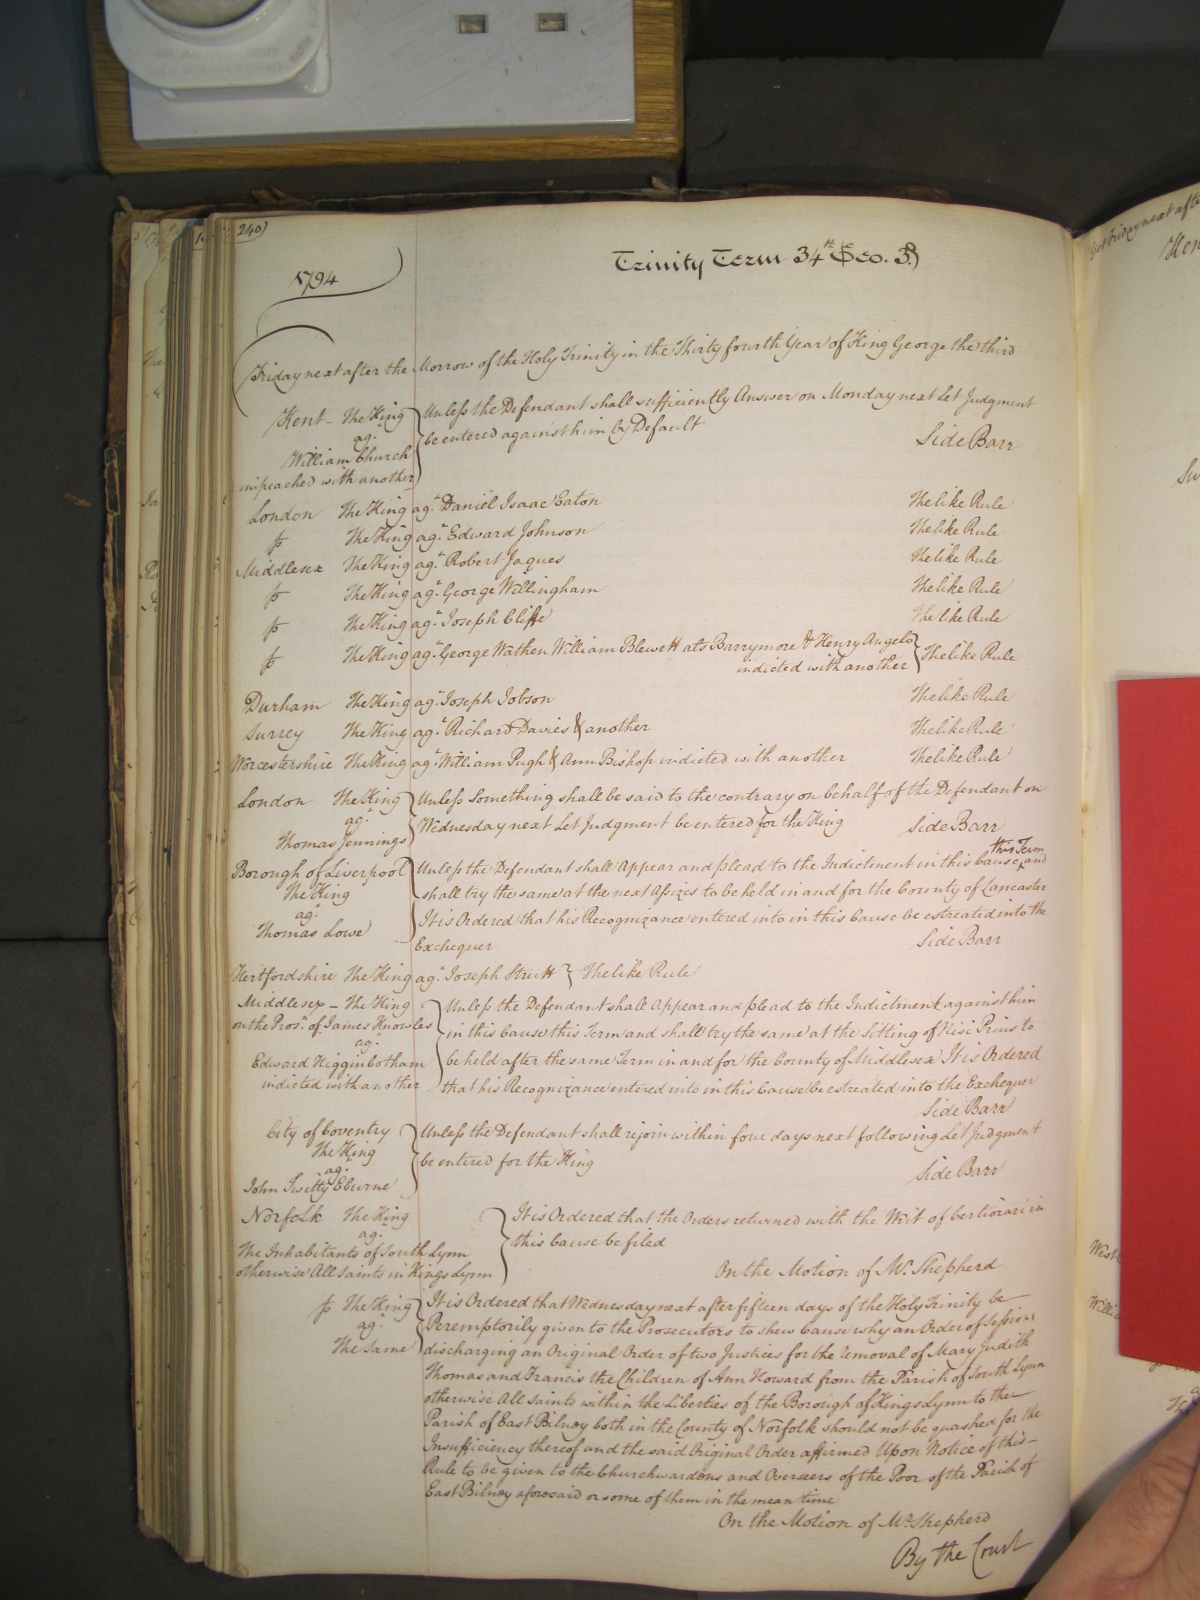 240)
1794
Trinity Term 34th Geo. 3d)
Friday next after the Morrow of the Holy Trinity in the Thirty fourth Year of King George the third
Kent - The King
agt
William Church
impeached with another
Unless the Defendant shall sufficiently Answer on Monday next Let Judgment
be entered against him by Default
Side Barr
London The King agt Daniel Isaac Eaton The like Rule
fs The King agt Edward Johnson The like Rule
Middlesex The King agt Robert Jaques The like Rule
fs The King agt George Willingham The like Rule
fs The King agt Joseph Cliffe The like Rule
fs The King agt George Wathen William Blewett als Barrymore & Henry Angelo
indicted with another The like Rule
Durham The King agt Joseph Jobson The like Rule
Surrey The King agt Richard Davies & another The like Rule
Worcestershire The King agt William Pugh & Ann Bishop indicted with another The like Rule
London The King
agt
Thomas Jennings
Unless Something shall be said to the contrary on behalf of the Defendant on
Wednesday next Let Judgment be entered for the King Side Barr
Borough of Liverpool
The King
agt
Thomas Lowe
Unless the Defendant shall Appear and plead to the Indictment in this Cause this Term and
shall try the same at the next Assizes to be held in and for the County of Lancaster
It is Ordered that his Recognizance entered into in this Cause be estreated into the
Exchequer Side Barr
Hertfordshire The King agt Joseph Strutt The like Rule
Middlesex - The King
on the Prosn of James Knowles
agt
Edward Higginbotham
indicted with another
Unless the Defendant shall Appear and plead to the Indictment against him
in this Cause this Term and shall try the same at the Sitting of Nisi Prius to
be held after the same Term in and for the County of Middlesex It is Ordered
that his Recognizance entered into in this Cause be estreated into the Exchequer
Side Barr
City of Coventry
The King
agt
John Twitty Eburne
Unless the Defendant shall rejoin within four days next following Let Judgment
be entered for the King
Side Barr
Norfolk The King
agt
The Inhabitants of South Lynn
otherwise All Saints in Kings Lynn
It is Ordered that the Orders returned with the Writ of Certiorari in
this Cause be filed
On the Motion of Mr. Shepherd
fs The King
agt
The Same
It is Ordered that Wednesday next after fifteen days of the Holy Trinity be
Peremptorily given to the Prosecutors to shew Cause why an Order of Sessions
discharging an Original Order of two Justices for the removal of Mary Judith
Thomas and Francis the Children of Ann Howard from the Parish of South Lynn
otherwise All Saints within the Liberties of the Borough of Kings Lynn to the
Parish of East Bilney both in the County of Norfolk should not be quashed for the
Insufficiency thereof and the said Original Order affirmed Upon Notice of this
Rule to be given to the Churchwardens and Overseers of the Poor of the Parish of
East Bilney aforesaid or some of them in the mean time
On the Motion of Mr. Shepherd
By the Court